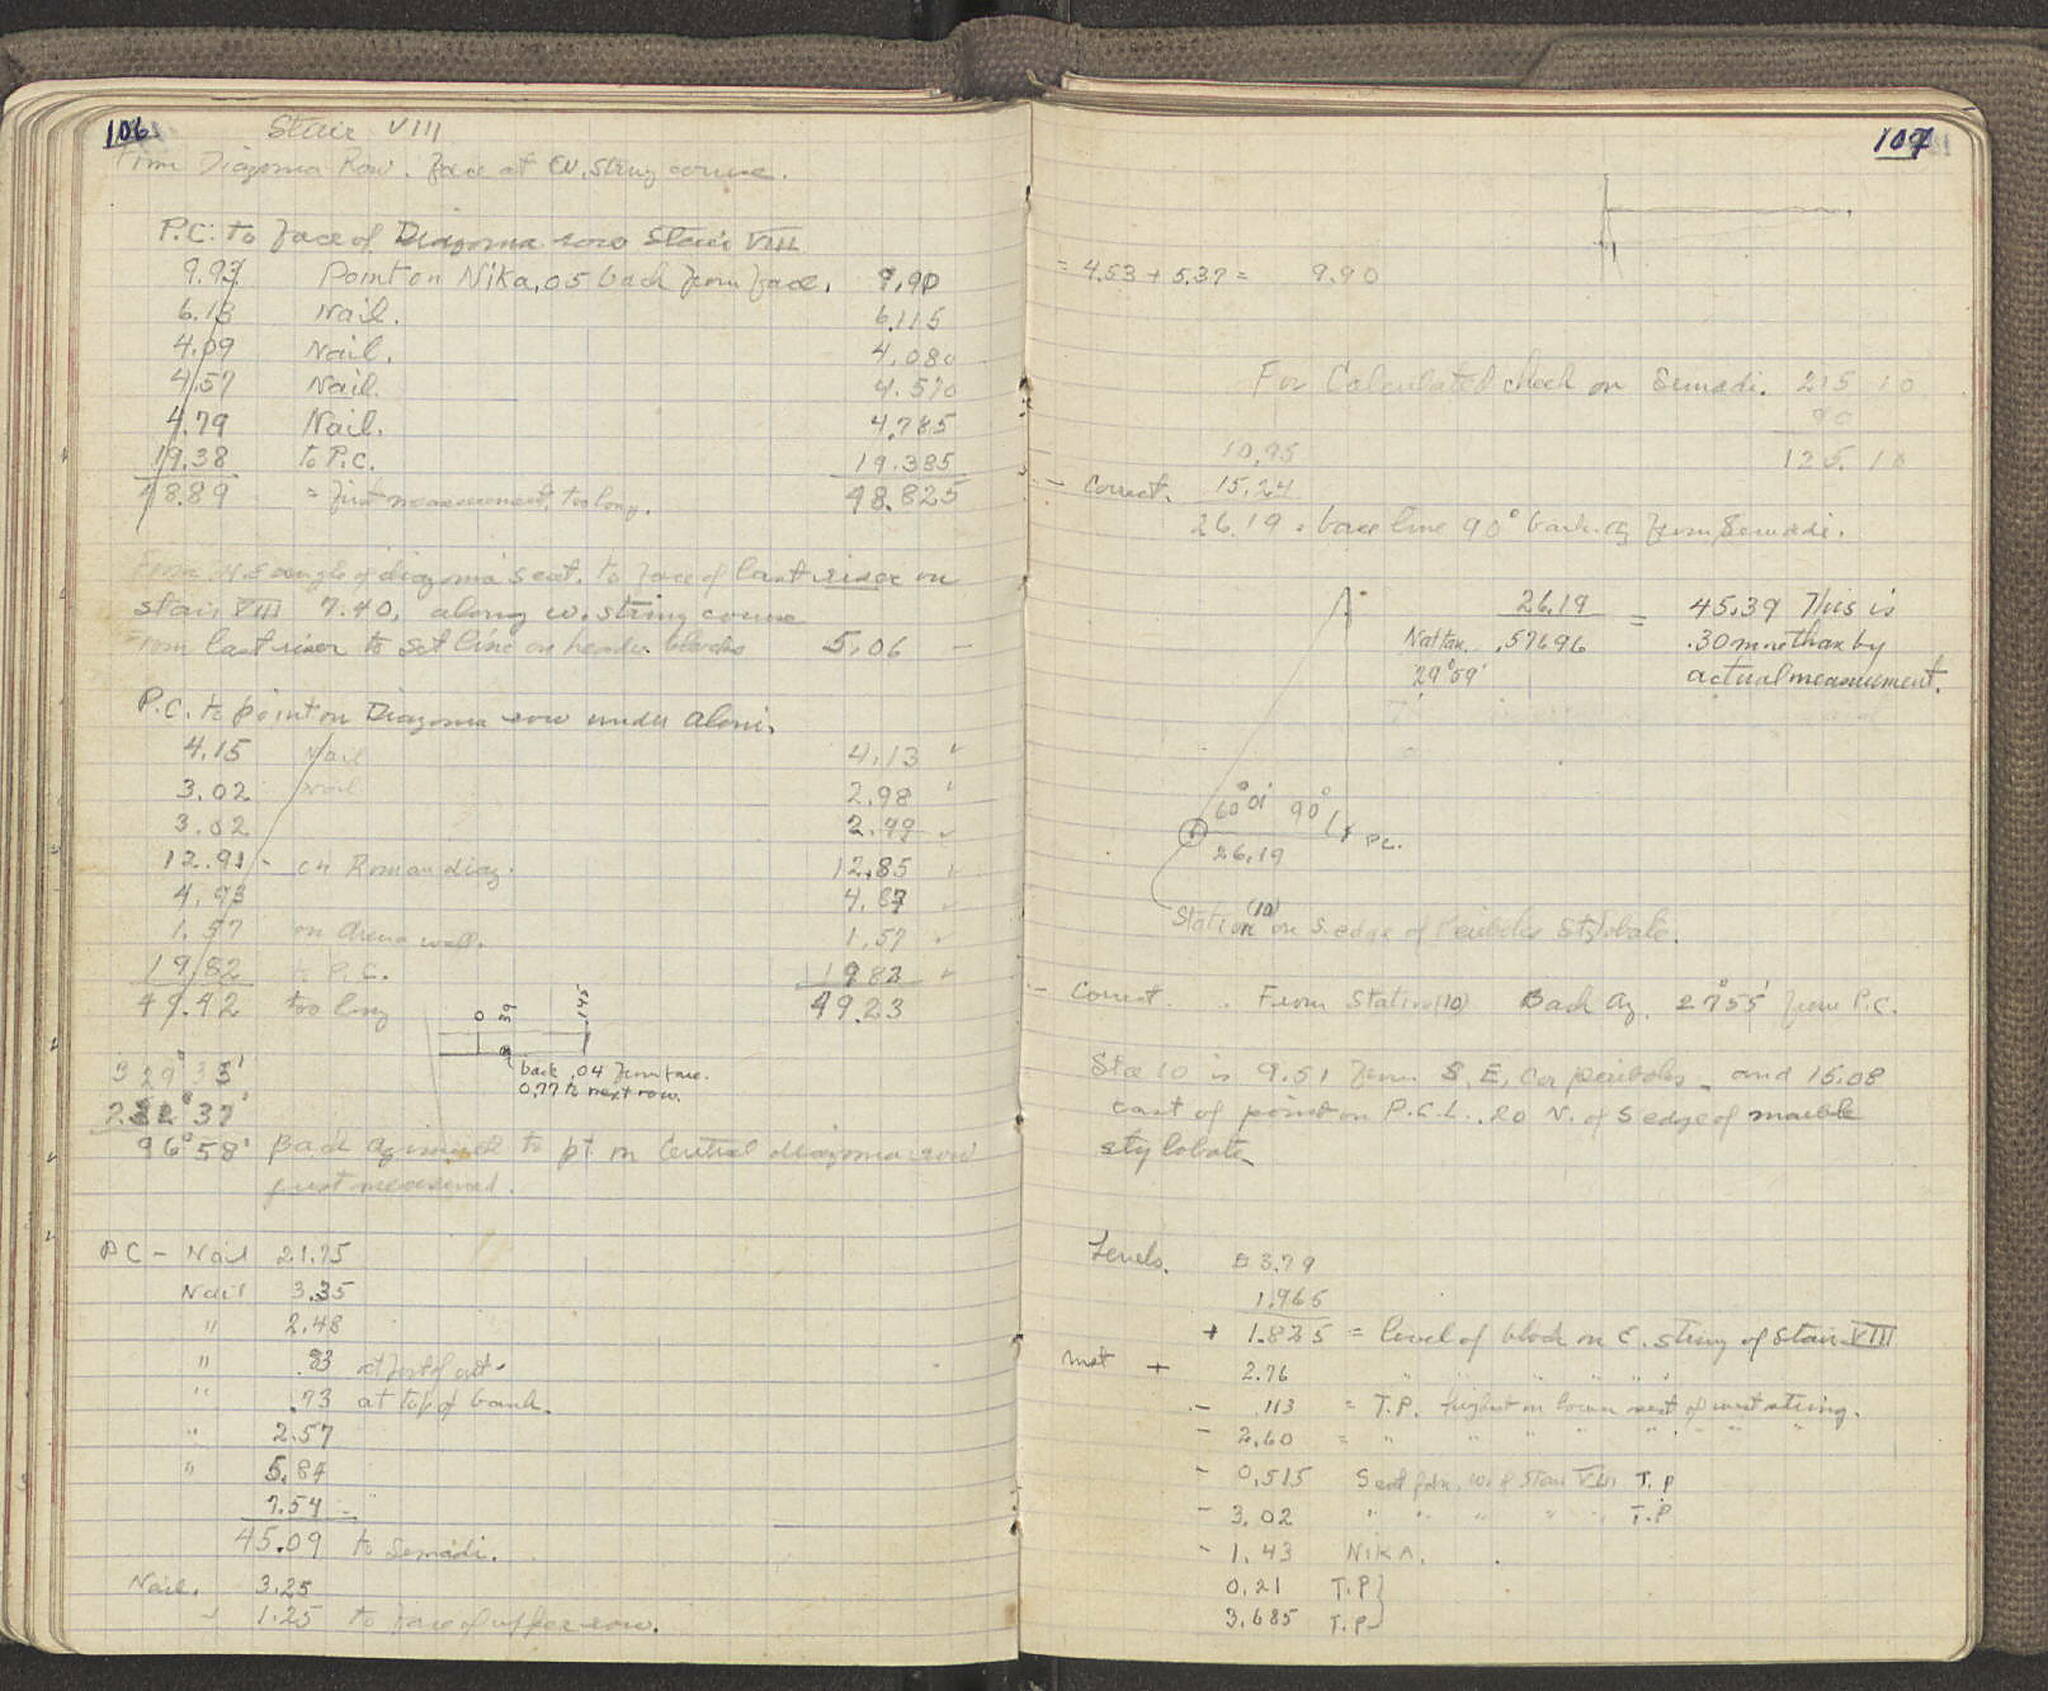 106
Stair VIII
From Diazoma Row. face at W. string course.
P.C. to face of Diazoma row Stair VIII
9.93 Point on Nika, .05 back from face. 9.90
6.13 Nail. 6.115
4.09 Nail. 4.080
4.57 Nail. 4.570
4.79 Nail. 4.785
19.38 to P.C. 19.385
48.89 = first measurement, too long. 48.825
From angle of diazoma seat. to face of last riser on
stair VIII 7.40, along W. string course
From last riser to set line on header blocks 5.06 -
P.C. to point on Diazoma row under aloni.
4.15 Nail 4.13 ✓
3.02 Nail 2.98 ✓
3.02 2.99 ✓
12.91 - on Roman diaz. 12.85 ✓
4.93 4.87 ✓
1.57 on Arena wall. 1.57 ✓
19.82 to P.C. 19 82 ✓
49.42 too long 49.23
0 39 .145
back .04 from face.
0.77 to next row.
329° 35'
232° 37'
96° 58' Back azimuth to pt on Central diazoma row
just measured.
PC - Nail 21.75
Nail 3.35
" 2.48
" .83 at foot of cut -
" .73 at top of bank.
" 2.57
" 5.84
7.54 -
45.09 to Semadi.
Nail. 3.25
" 1.25 to face of upper row.
107
= 4.53 + 5.37 = 9.90
For Calculated check on Semadi. 215 10
90
10.95 125. 10
- Correct. 15.24
26.19 = base line 90° back az from Semadi.
26.19 = 45.39 This is
Nat tan. .57696 .30 more than by
29° 59' actual measurement.
60° 01' 90°
26.19 P.C.
Station (10) on S. edge of Peribolos Stylobate.
- Correct. From Station (10) Back az. 27° 55' from P.C.
Sta 10 is 9.51 from S.E. Cor peribolos - and 15.08
east of point on P.C.L. .20 N. of S edge of marble
stylobate
Levels. 3.79
1.965
+ 1.825 = level of block on E. string of Stair VIII
+ 2.76 " " " " " "
- .113 = T.P. highest on lower seat of west string.
- 2.60 = " " " " " " " "
- 0.515 Seat fdn. W. of Stair VIII T.P
- 3.02 " " " " " T.P
- 1.43 NIKA.
0.21 T.P }
3.685 T.P